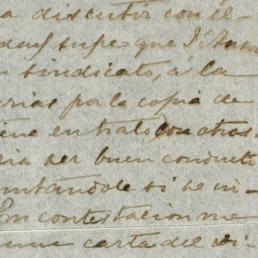 a discutir con el-
supe que
sindicato, á la
rias por la copia de
ene en trato con otras
ria ser buen conducto
ntándole si se in-
En contestacion me
una carta del vi-